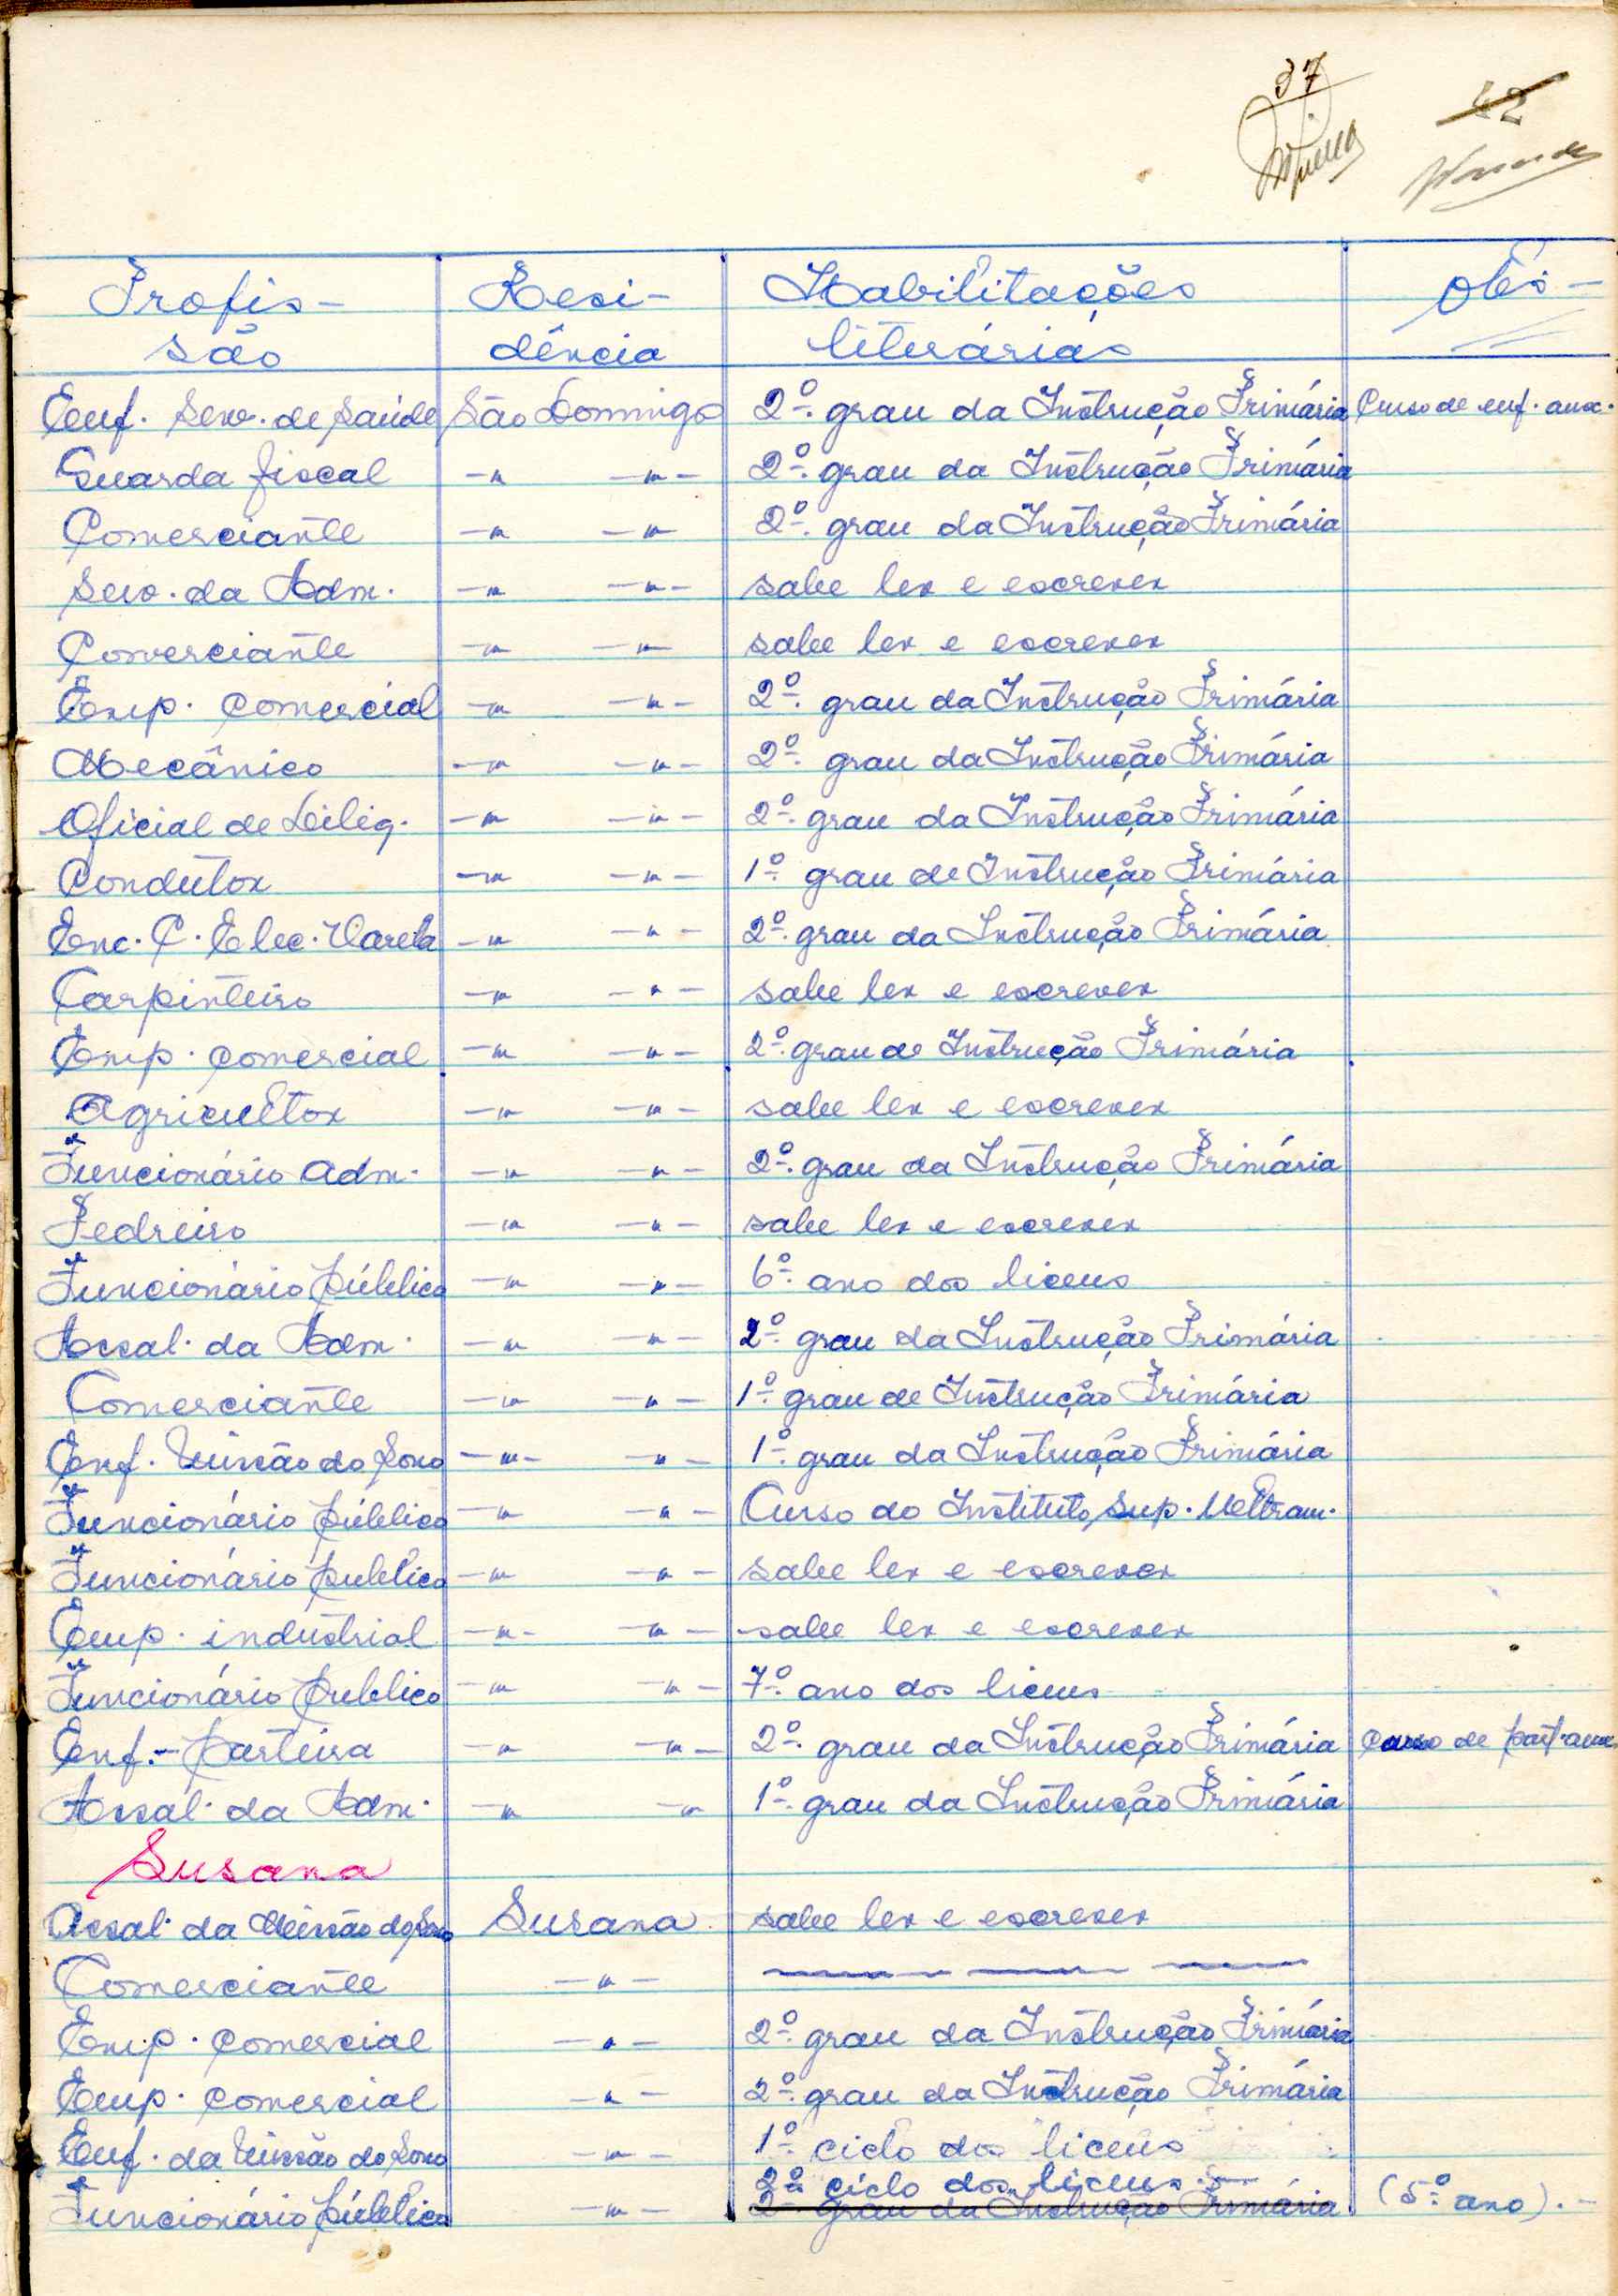 37
42
Profis- Resi- Habilitações Obs-
são dência literárias
Enf. Serv. de Saúde São Domingo 2º. grau da Instrução Primária Curso de enf. aux.
Guarda fiscal -"- -"- 2º. grau da Instrução Primária
Comerciante -"- -"- 2º. grau da Instrução Primária
Serv. da Adm. -"- -"- sabe ler e escrever
Comerciante -"- -"- sabe ler e escrever
Emp. comercial -"- -"- 2º. grau da Instrução Primária
Mecânico -"- -"- 2º. grau da Instrução Primária
Oficial de Dilig. -"- -"- 2º. grau da Instrução Primária
Condutor -"- -"- 1º. grau de Instrução Primária
Enc. C. Elec. Varela -"- -"- 2º. grau da Instrução Primária
Carpinteiro -"- -"- sabe ler e escrever
Emp. comercial -"- -"- 2º. grau de Instrução Primária
Agricultor -"- -"- sabe ler e escrever
Funcionário Adm. -"- -"- 2º. grau da Instrução Primária
Pedreiro -"- -"- sabe ler e escrever
Funcionário público -"- -"- 6º. ano dos liceus
Assal. da Adm. -"- -"- 2º. grau da Instrução Primária
Comerciante -"- -"- 1º. grau de Instrução Primária
Enf. Missão do Sono -"- -"- 1º. grau da Instrução Primária
Funcionário público -"- -"- Curso do Instituto Sup. Ultram.
Funcionário público -"- -"- sabe ler e escrever
Emp. industrial -"- -"- sabe ler e escrever
Funcionário público -"- -"- 7º. ano dos liceus
Enf.-parteira -"- -"- 2º. grau da Instrução Primária Curso de part. aux.
Assal. da Adm. -"- -"- 1º. grau da Instrução Primária
Susana
Assal. da Missão do Sono Susana sabe ler e escrever
Comerciante -"-
Emp. comercial -"- 2º. grau da Instrução Primária
Emp. comercial -"- 2º. grau da Instrução Primária
Enf. da Missão do Sono -"- 1º. ciclo dos liceus
2º ciclo dos liceus.-
Funcionário público -"- 2º. grau da Instrução Primária (5º. ano).-